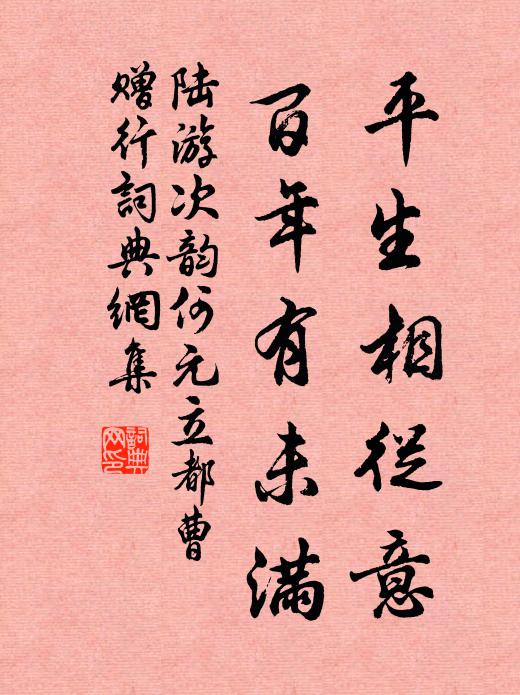 平生相從意
百年有未滿
陆游次韵何元立都曹
赠行詞典網集
詞典
网印